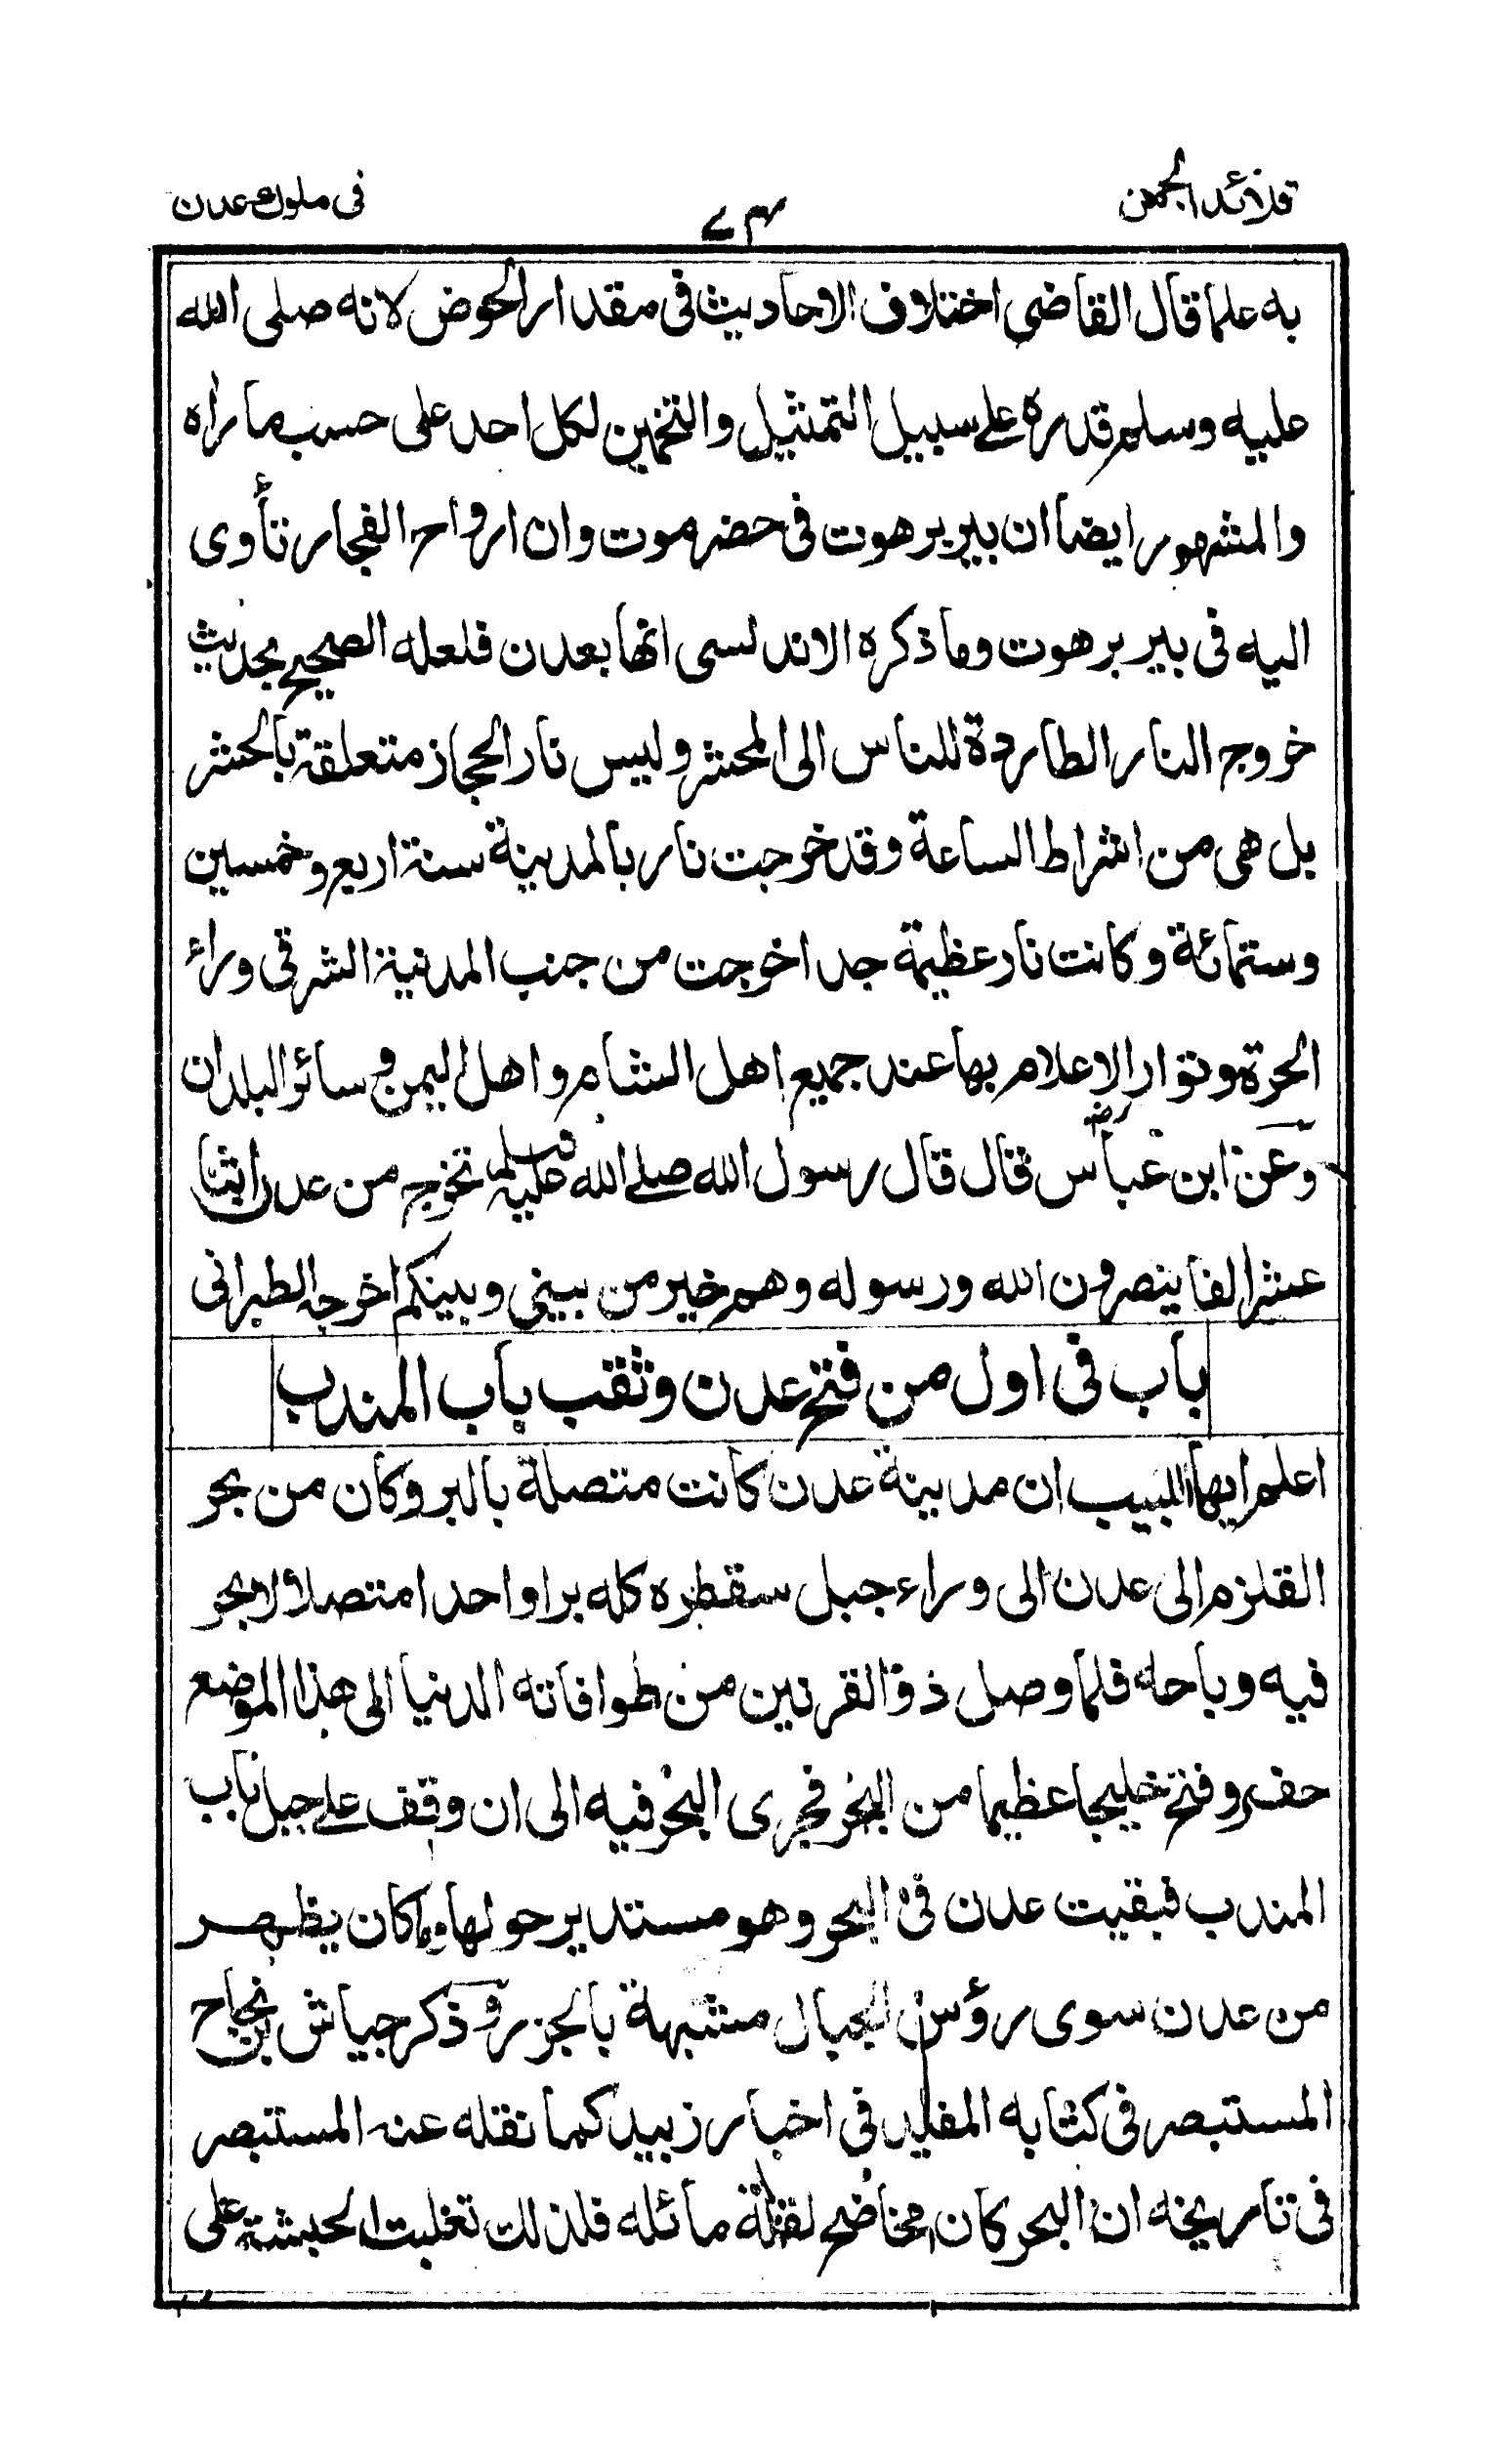 قلائد الجمن
٧٣
فى ملوك عدن
به علما قال القاضى اختلاف الاحاديث فى مقدار الحوض لانه صلى الله
عليه وسلم قدره على سبيل التمثيل والتخمين لكل احد على حسب ما راه
والمشهور ايضا ان بير برهوت فى حضرموت وان ارواح الفجار تأوى
اليه فى بير برهوت وما ذكره الاندلسى انها بعدن فلعله الصحيح بحديث
خروج النار الطاردة للناس الى المحشر وليس نار الحجاز متعلقة بالحشر
بل هى من اشراط الساعة وقد خرجت نار بالمدينة سنة اربع وخمسين
وستمائة وكانت نار عظيمة جدا خرجت من جنب المدنية الشرقى وراء
الحرة وتواتر الاعلام بها عند جميع اهل الشام واهل اليمن وسائر البلدان
وعن ابن عباس رض قال قال رسول الله صلى الله عليه وسلم تخرج من عدن اثنا
عشر الفا ينصرون الله ورسوله وهم خير من بينى وبينكم اخرجه الطبرانى
باب فى اول من فتح عدن وثقب باب المندب
اعلم ايها اللبيب ان مدينة عدن كانت متصلة بالبر وكان من بحر
القلزم الى عدن الى وراء جبل سقطره كله برا واحدا متصلا لا بحر
فيه وباحه فلما وصل ذو القرنين من طوافاته الدنيا الى هذا الموضع
حفر وفتح خليجا عظيما من البحر فجرى البحر فيه الى ان وقف على جبل باب
المندب فبقيت عدن فى البحر وهو مستدير حولها وما كان يظهر
من عدن سوى رؤس الجبال مشبهة بالجزر وذكر جياش بن نجاح
المستبصر فى كتابه المفيد فى اخبار زبيد كما نقله عنه المستبصر
فى تاريخه ان البحر كان مخاضح لقلة مائله فلذلك تغلبت الحبشة على